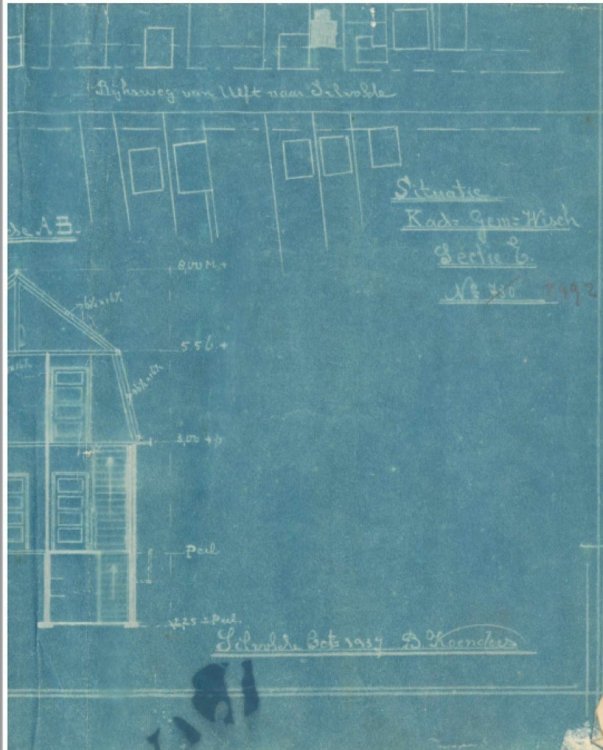 Rijksweg van Ulft naar Silvolde
Situatie
Kad. Gem. Wisch
Sectie E.
de A.B.
No 730 7992
8,00 M. +
5.56. +
3,00 +
Peil
1,25 - Peil.
Silvolde Oct. 1937 B. Koenders